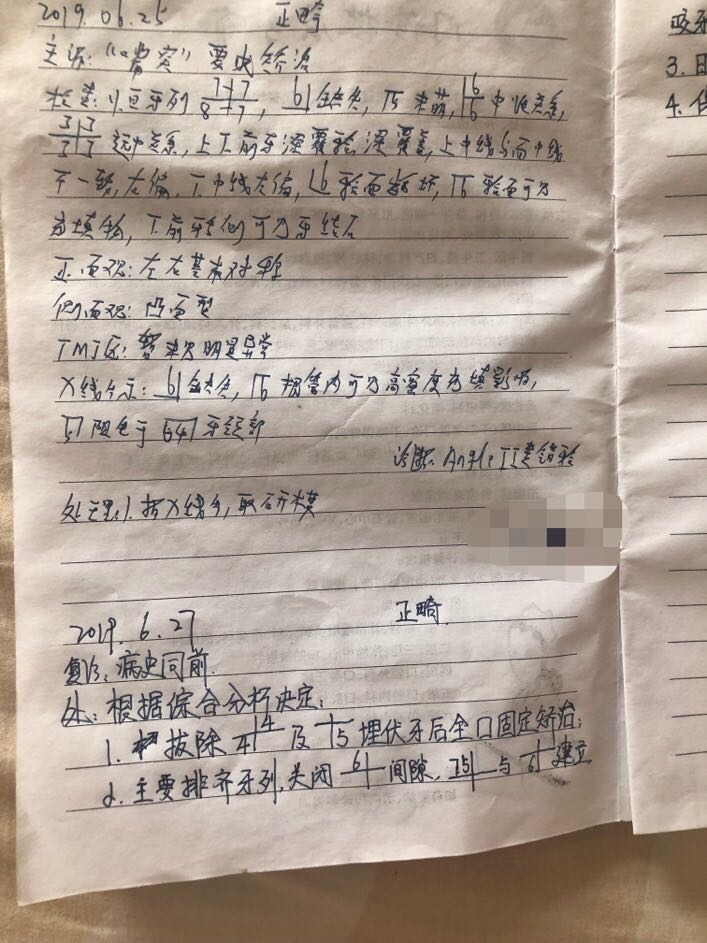 2019.06.25 正畸
主诉:"嘴突"要求矫治
检查:恒牙列 7+7 8+7, 6缺失, 5未萌, 6 6中性关系,
3 3 3 3远中关系,上下前牙深覆𬌗深覆盖,上中线与面中线
不一致,右偏,下中线左偏,6𬌗面龋坏,6𬌗面可见
充填物,下前牙舌侧可见牙结石
正面观:左右基本对称
侧面观:凸面型
TMJ区:暂未见明显异常
X线片示:6缺失,6根管内可见高密度充填影响,
5阻生于64牙之间
诊断:Angle II类错𬌗
处理:1.拍X线片,取研模
2019.6.27 正畸
复诊:病史同前.
处:根据综合分析决定:
1.拔除4 4及5埋伏牙后全口固定矫治;
2.主要排齐牙列,关闭6间隙,75与6建立
咬
3.
4.